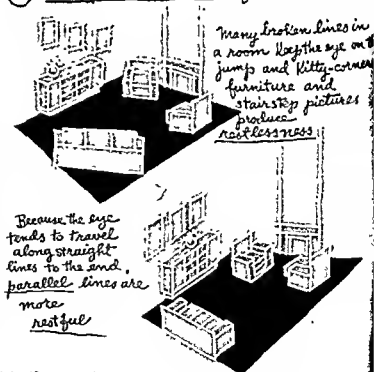 Many broken lines in
a room keep the eye on
jump and kitty-corner
furniture and
stairstep pictures
produce
restlessness
Because the eye
tends to travel
along straight
lines to the end,
parallel lines are
more
restful